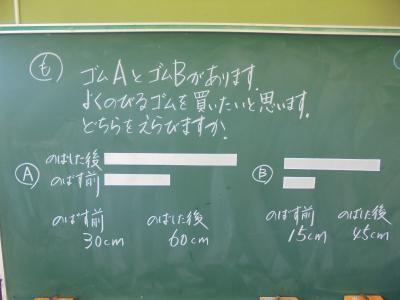 も
ゴムAとゴムBがあります。
よくのびるゴムを買いたいと思います。
どちらをえらびますか?
A
のばした後
のばす前
のばす前 のばした後
30cm 60cm
B
のばす前 のばした後
15cm 45cm